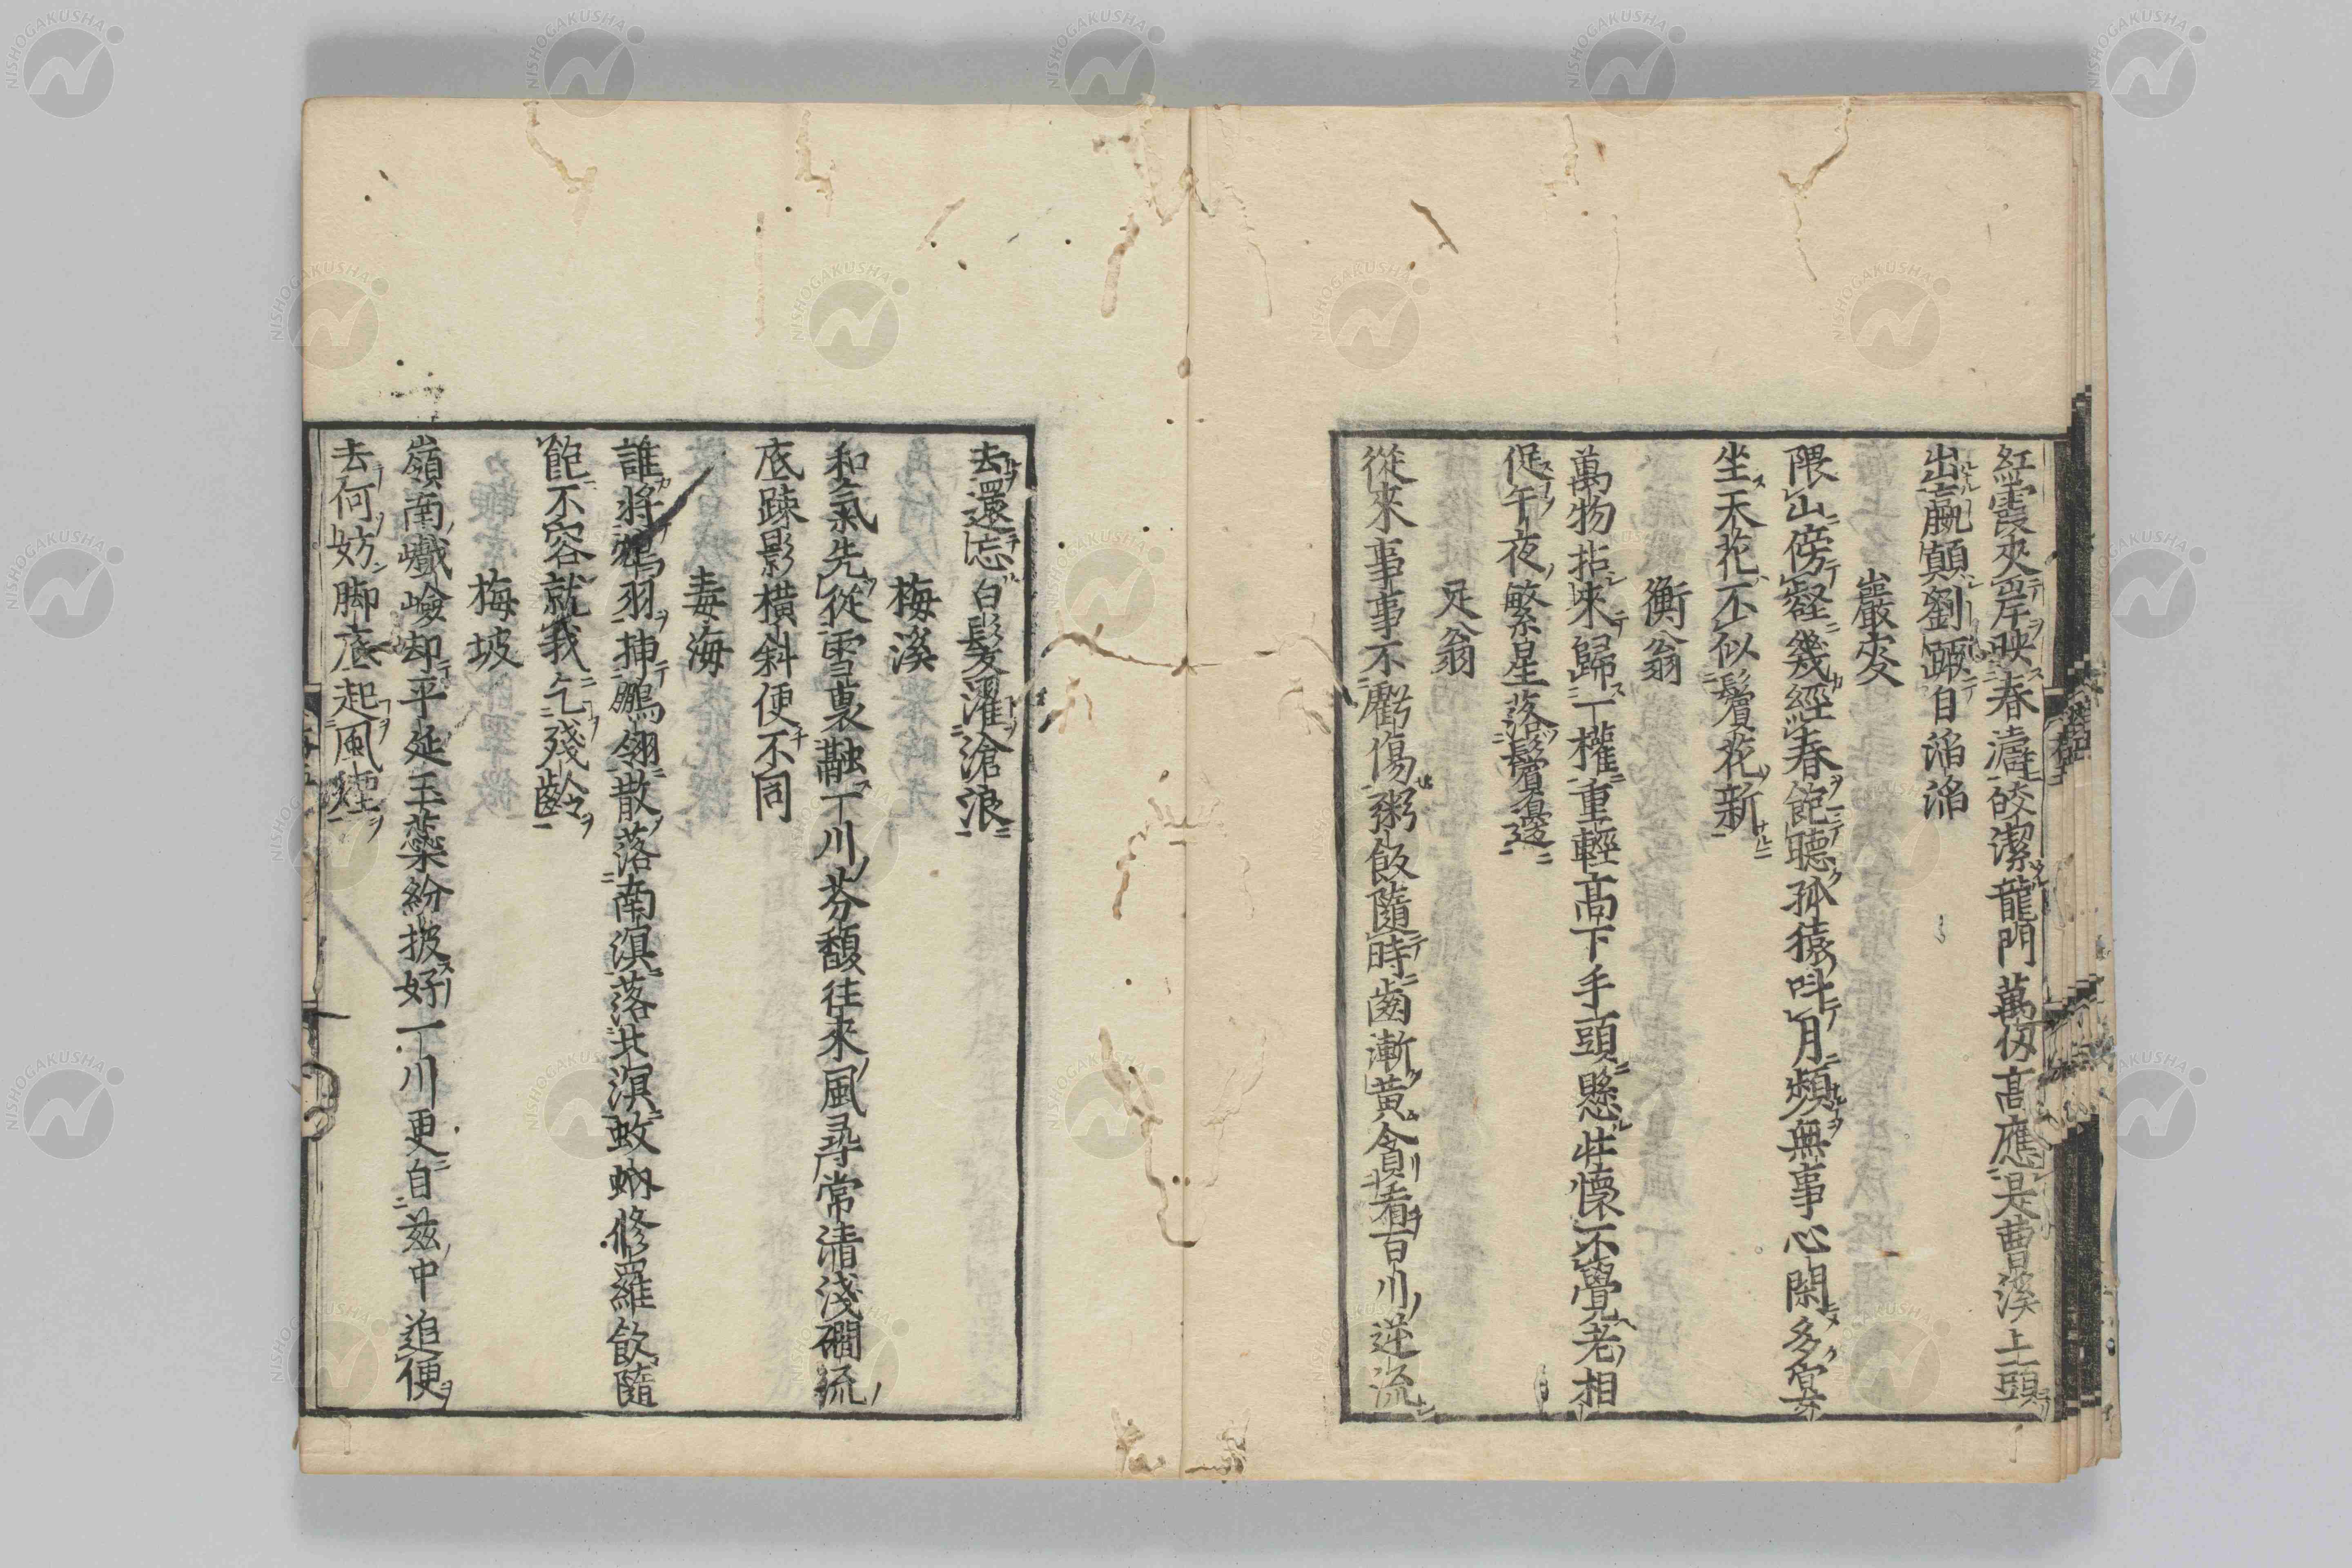 紅霞夾岸映春濤皎潔龍門萬仭高應是曹溪上頭
出贏顛劉蹶自滔滔
巖叟
隈山傍壑幾經春飽聽孤猿呌月頻無事心閑多宴
坐天花不似鬢花新
衡翁
萬物拈來歸一權重輕高下手頭懸壯懷不覺老相
促午夜繁星落鬢邊
足翁
從來事事不虧傷粥飯隨時齒漸黃貪看百川逆流
去還忘白髮濯滄浪
梅溪
和氣先從雪裏融一川芬馥往來風尋常清淺磵流
底踈影橫斜便不同
毒海
誰將鴆羽揷鵬翎散落南溟落北溟蚊蚋修羅飲隨
飽不容就我乞殘齡
梅坡
嶺南巇嶮却平延玉蘂紛披好一川更自茲中追便
去何妨脚底起風煙